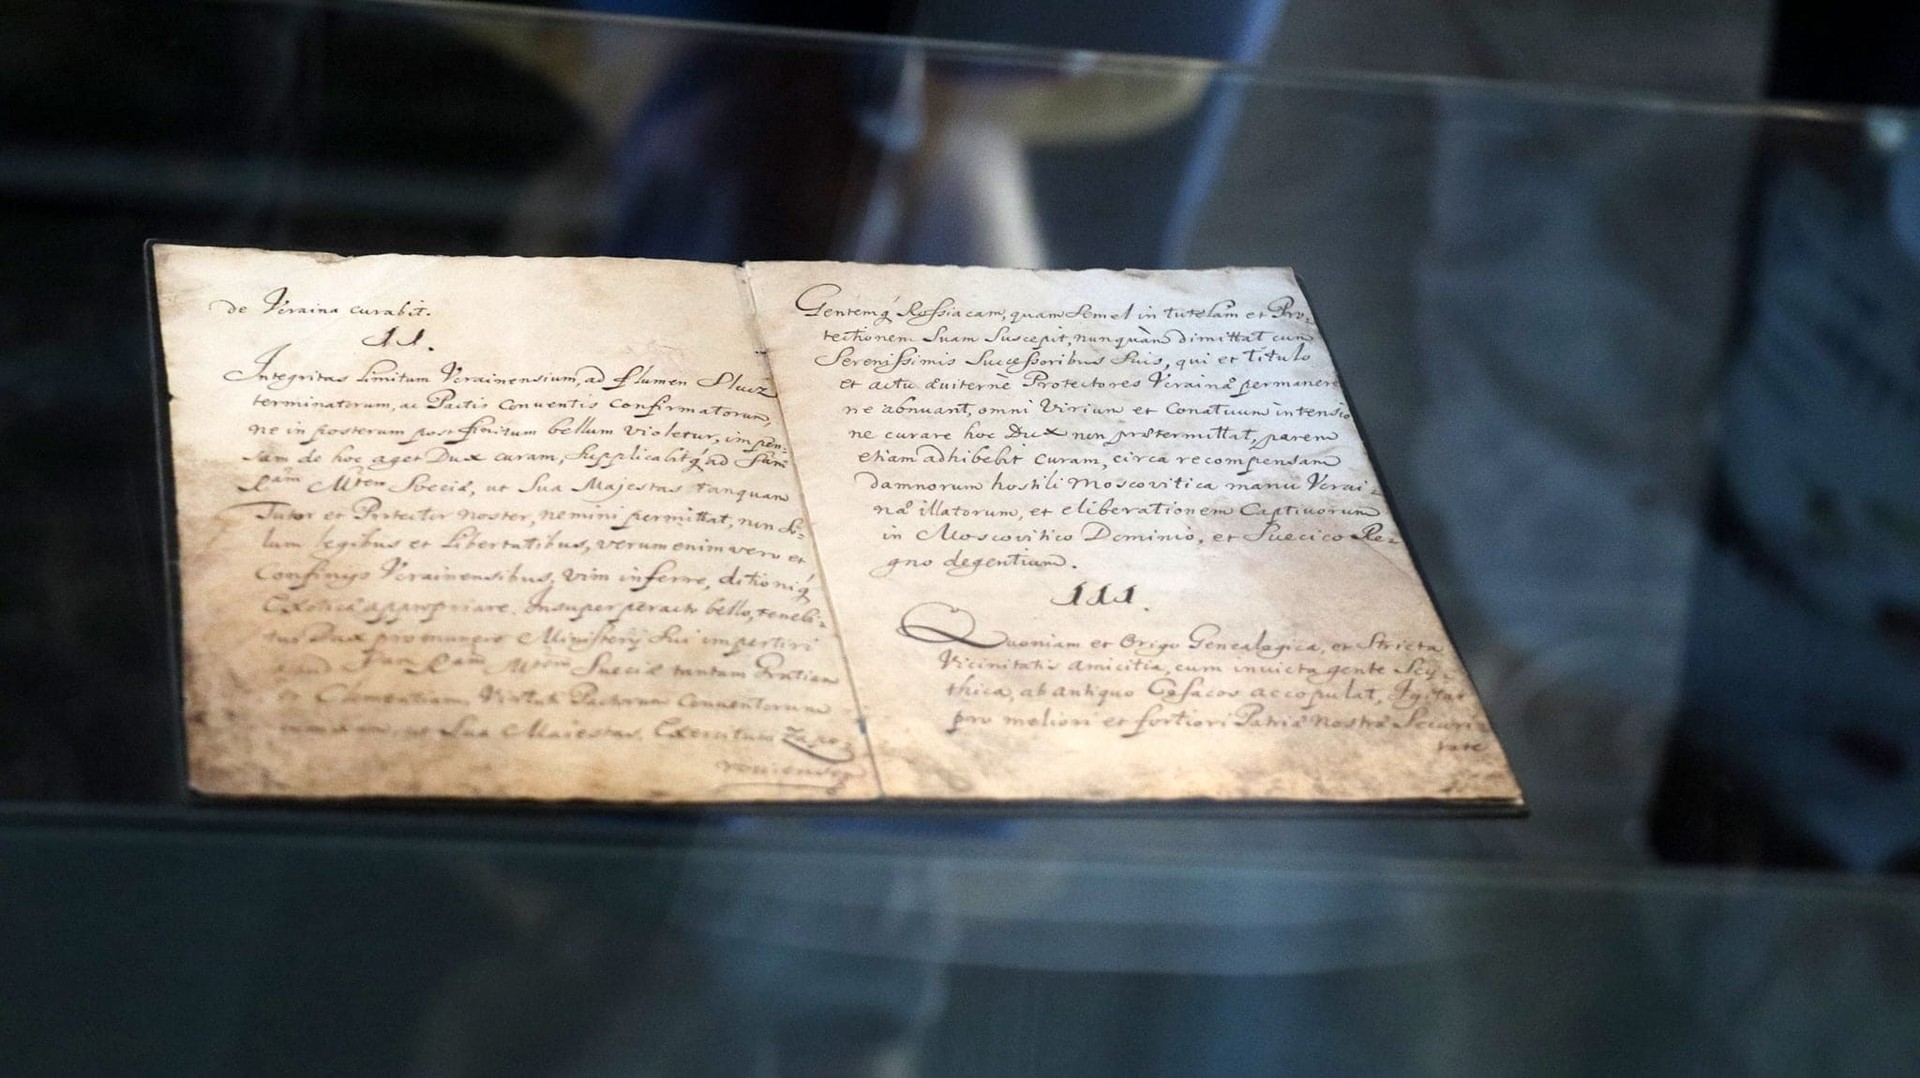 de Vcraina curabit.
II.
Integritas limitum Vcrainensium, ad flumen Slucz
terminatorum, ac Pactis Conventis confirmatorum,
ne in posterum post finitum bellum violetur, impen-
sam de hoc aget Dux curam, Supplicabitq́ ad Sam
Ram Mtem Sueciæ, ut Sua Majestas tanquam
Tutor et Protector noster, nemini permittat, non So-
lum legibus et Libertatibus, verum enim vero et
Confinijs Vcrainensibus, vim inferre, ditioniq́
Exoticæ appropriare. Insuper peracto bello, tenebi-
tur Dux pro munere Ministerij Sui impertiri
apud Sam Ram Mtem Sueciæ tantam Gratiam
et Clementiam, Virtute Pactorum Conventorum
ut Sua Maiestas, Exercitum Zapo-
roviensem
Gentemq́ Rossiacam, quam Semel in tutelam et Pro-
tectionem Suam Suscepit, nunquàm dimittat cum
Serenissimis Successoribus Suis, qui et titulo
et actu æuiternè Protectores Vcrainæ permanere
ne abnuant, omni Virium et Conatuum intensio
ne curare hoc Dux non prætermittat, parem
etiam adhibebit curam, circa recompensam
damnorum hostili Moscovitica manu Vcrai-
næ illatorum, et eliberationem Captivorum
in Moscovitico Dominio, et Suecico Re-
gno degentium.
III.
Quoniam et Origo Genealogica, et Stricta
Vicinitatis amicitia, cum invicta gente Scy-
thica, ab antiquo Cosacos accopulat, Igitur
pro meliori et fortiori Patriæ Nostræ Securi-
tate